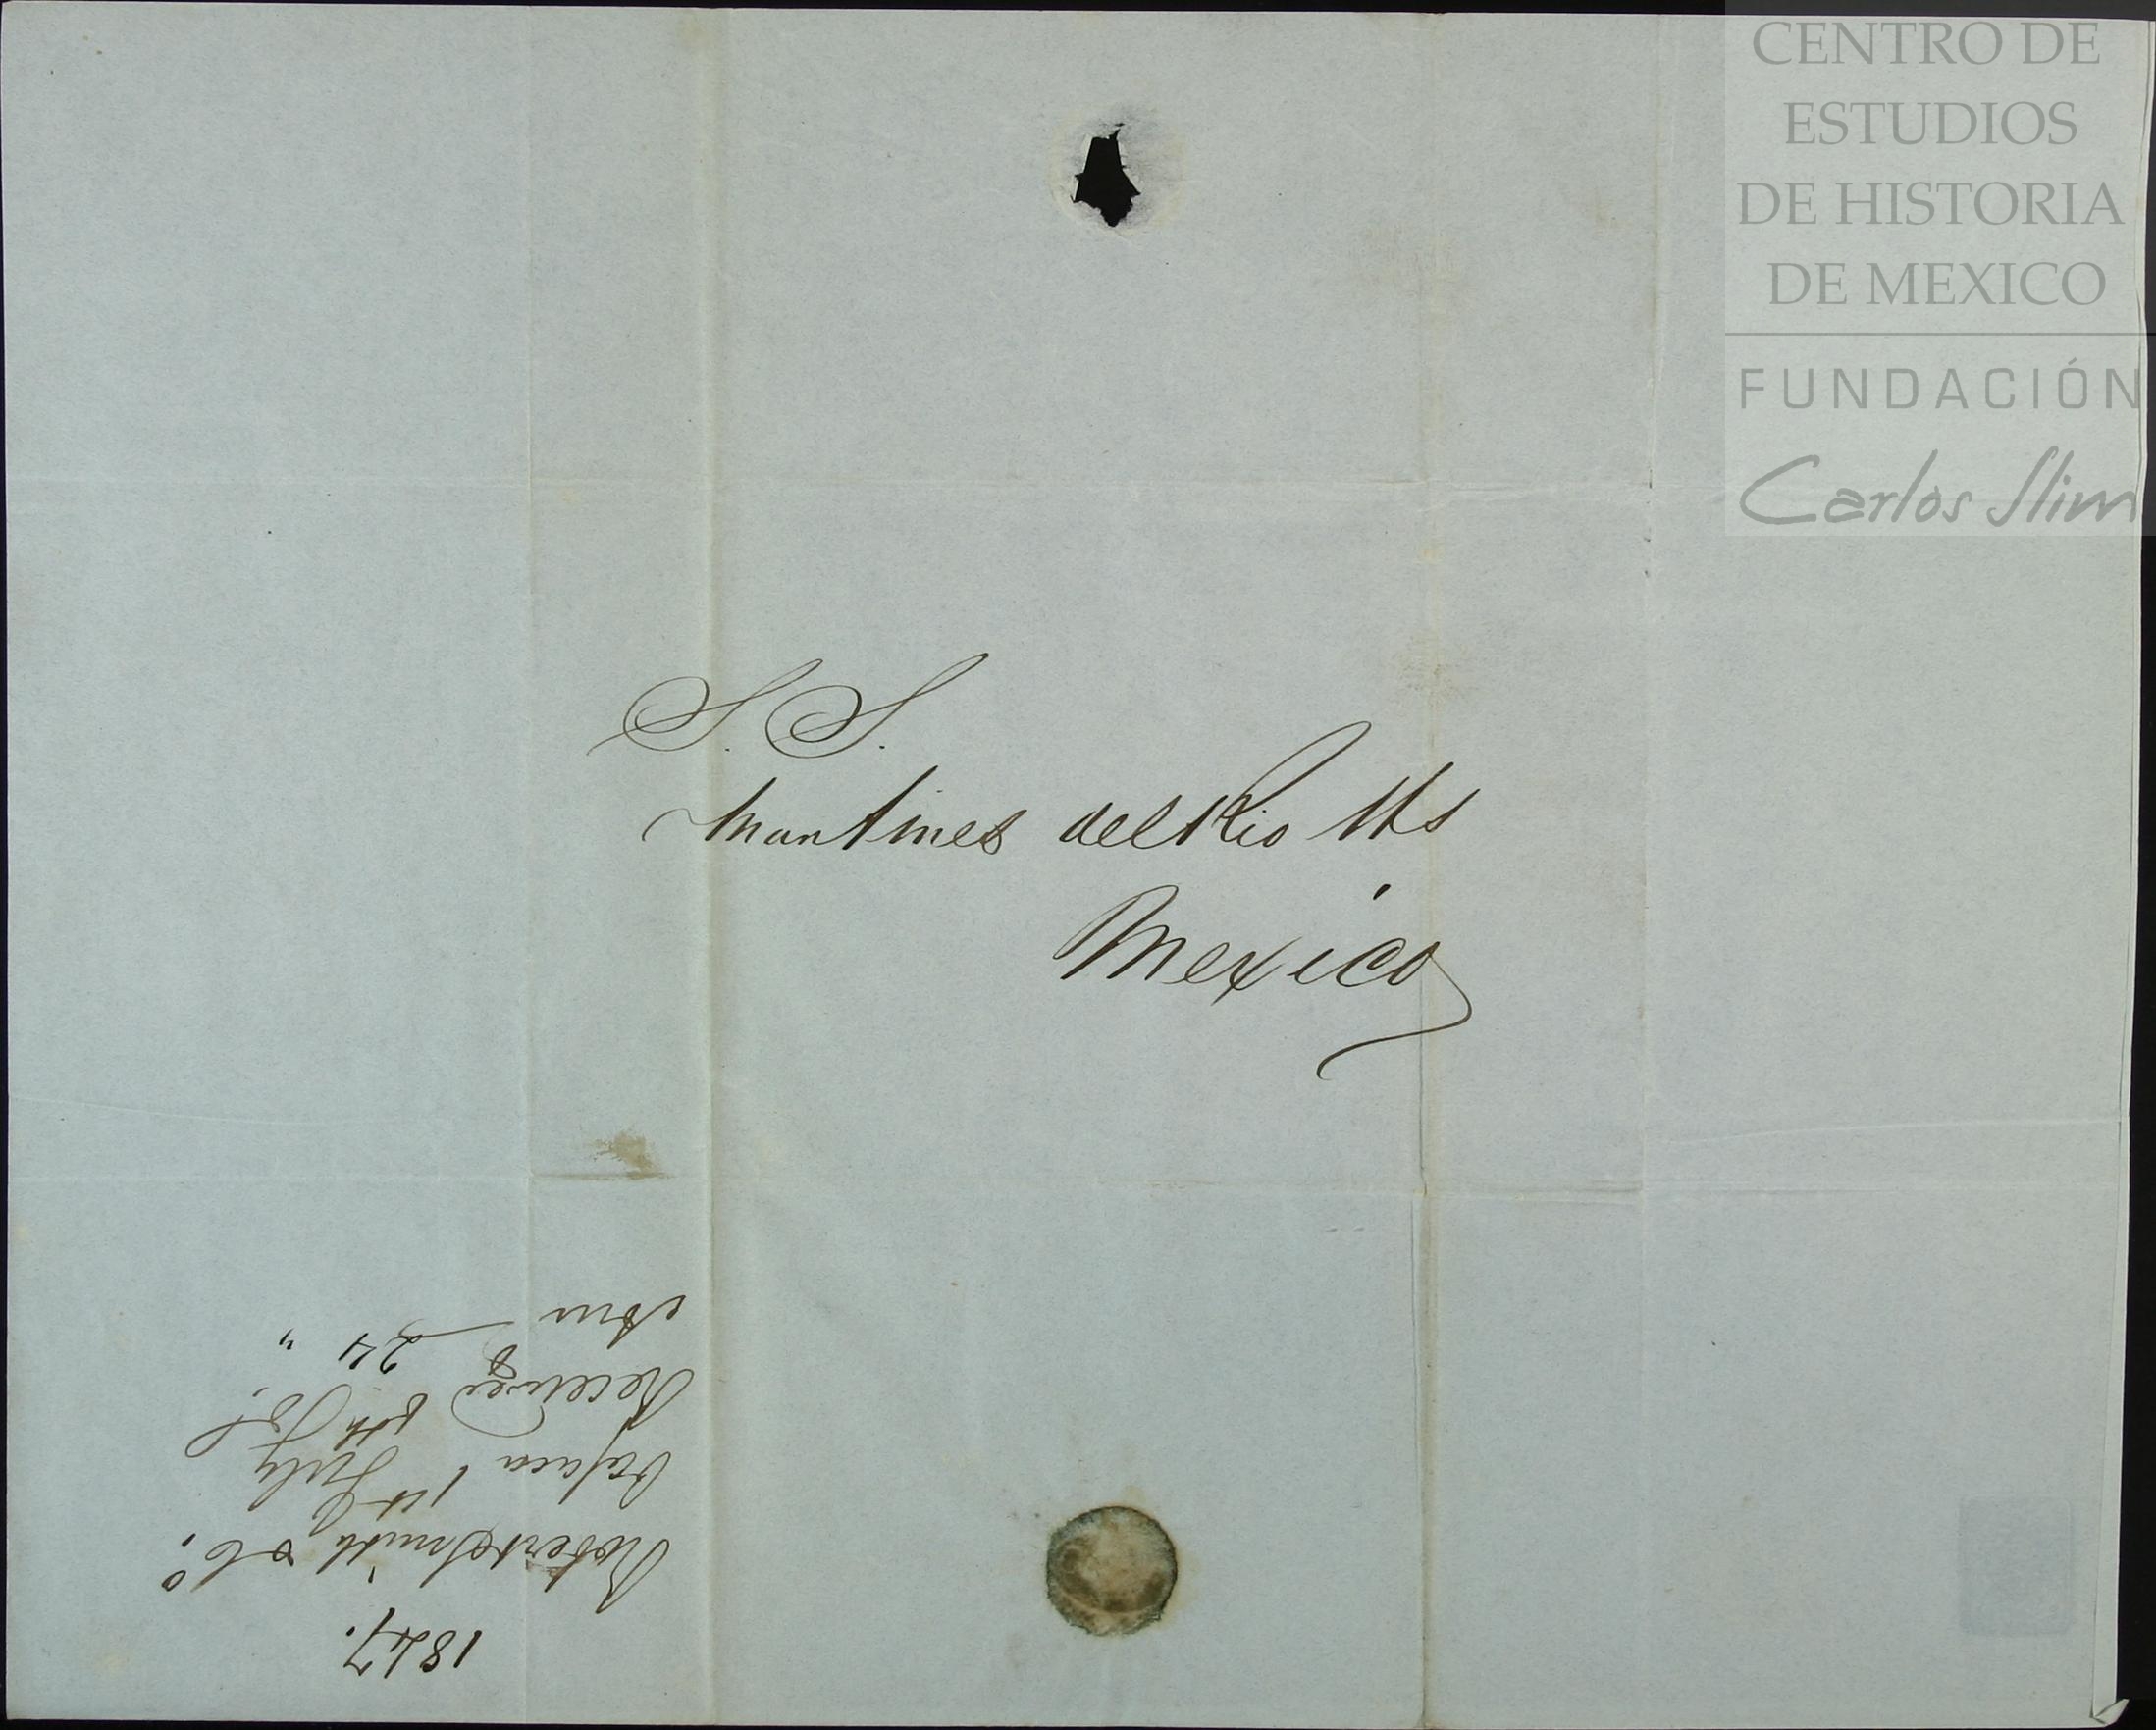 S. S.
Martinez del Rio Hs
Mexico
1847.
Robert Smith & Co.
Oajaca 1st July
Received 8th Jul.
Ans 24 "
CENTRO DE
ESTUDIOS
DE HISTORIA
DE MEXICO
FUNDACIÓN
Carlos Slim